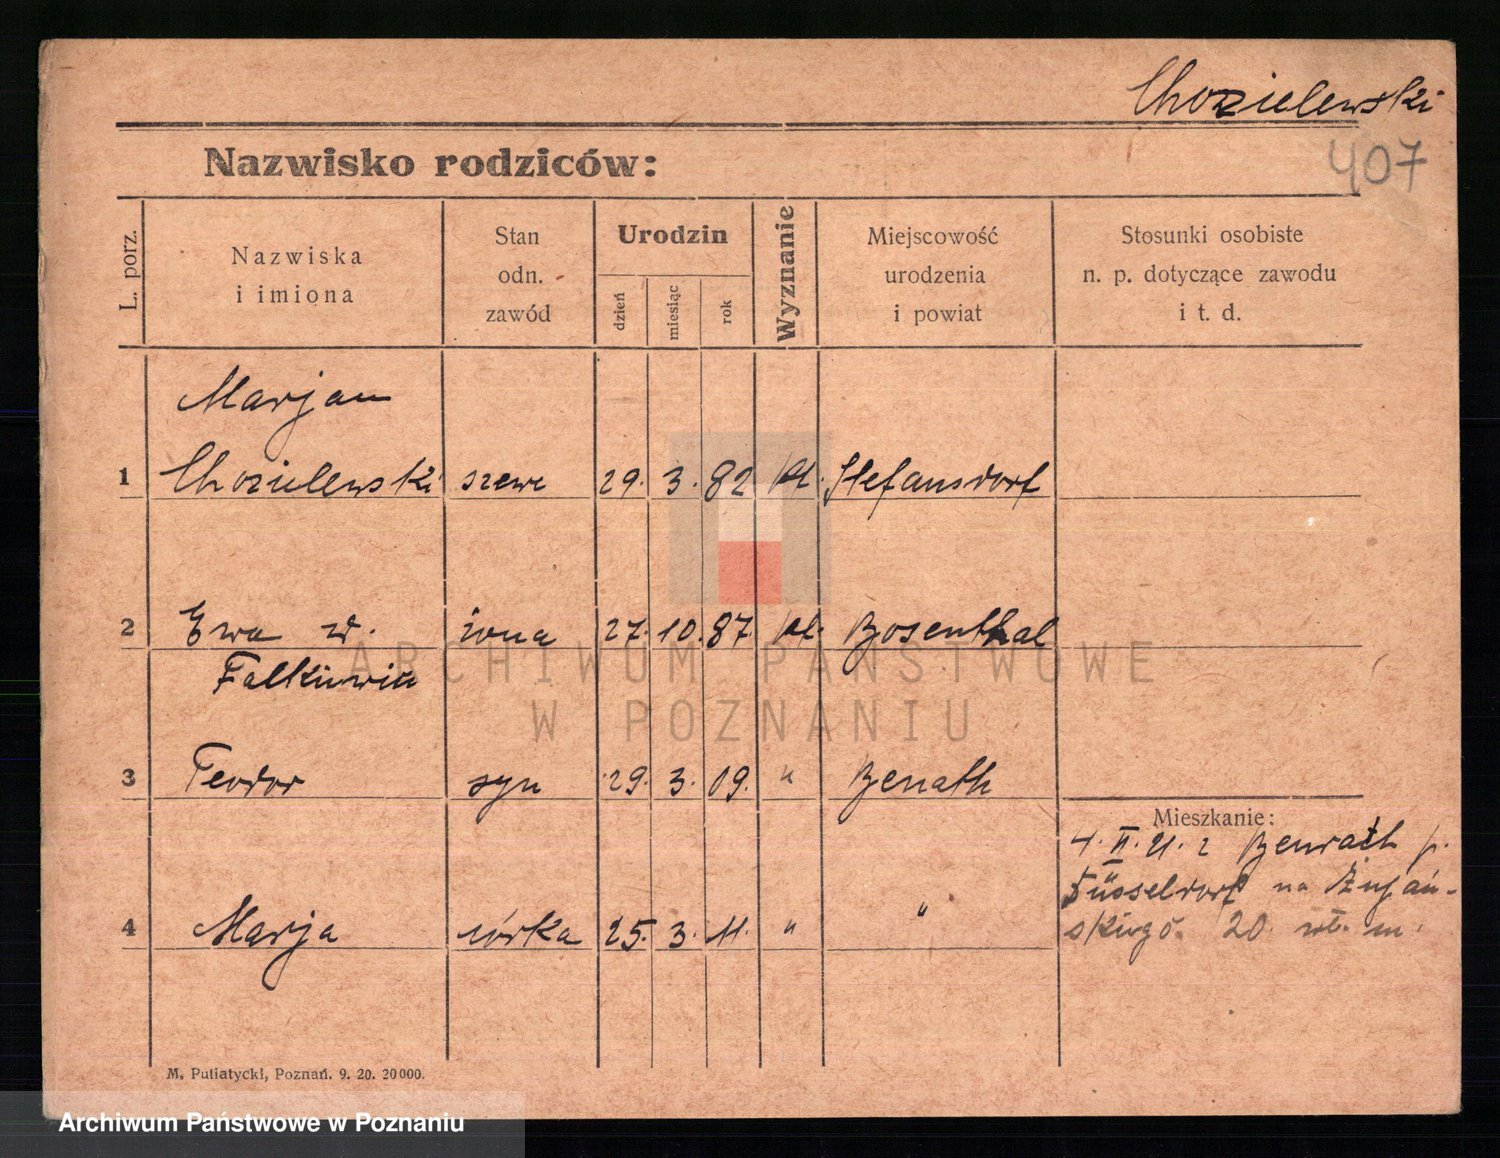 Chozielewski
407
Nazwisko rodziców:
L. porz.
Nazwiska
i imiona
Stan
odn.
zawód
Urodzin
dzień
miesiąc
rok
Wyznanie
Miejscowość
urodzenia
i powiat
Stosunki osobiste
n. p. dotyczące zawodu
i t. d.
Marjan
1 Chozielewski szewc 29. 3. 82 kt. Stefansdorf
2 Ewa z d. żona 27. 10. 87. kt. Bosenthal
Falkiewicz
3 Teodor syn 29. 3. 09. " Benath
Mieszkanie:
4. II. 21. z Benrath p.
Düsseldorf na
4 Marja córka 25. 3. 11. " "
20. m.
M. Putiatycki, Poznań. 9. 20. 20000.
ARCHIWUM PAŃSTWOWE
W POZNANIU
Archiwum Państwowe w Poznaniu